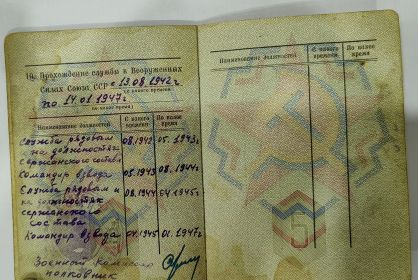 19. Прохождение службы в Вооруженных
Силах Союза ССР с 13.08.1942г
(с какого времени)
по 14.01.1947г
(по какое время)
Наименование должностей
С какого времени
По какое время
Служба рядовым
на должностях
сержанского состава
08.1942
05.1943г
Командир взвода
05.1943
08.1944г
Служба рядовым и
на должностях
сержанского
состава
08.1944
04.1945г
Командир взвода
04.1945
01.1947г
Военный комиссар
полковник
Наименование должностей
С какого времени
По какое время